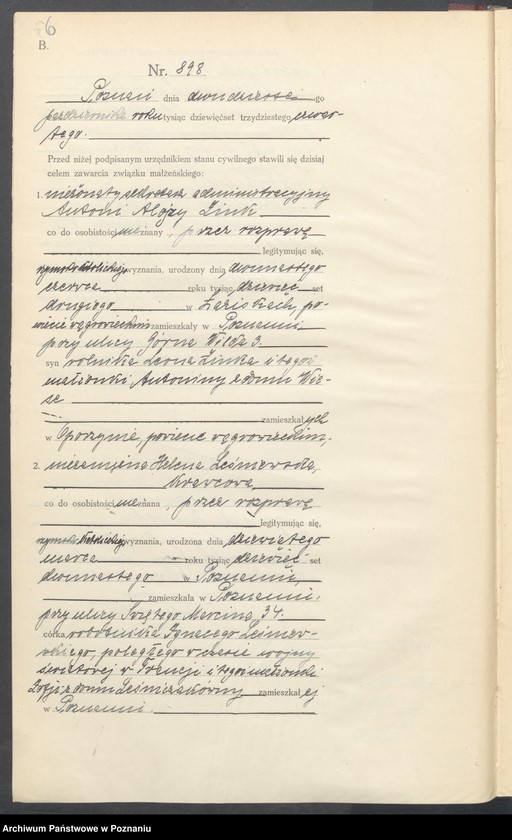 6
B.
Nr. 898
Poznań dnia dwudziestego
października roku tysiąc dziewięćset trzydziestego czwar-
tego.
Przed niżej podpisanym urzędnikiem stanu cywilnego stawili się dzisiaj
celem zawarcia związku małżeńskiego:
1. nieżonaty sekretarz administracyjny
Antoni Alojzy Zink
co do osobistości nieznany, przez rozprawę
legitymując się,
rzymsko katolickiego wyznania, urodzony dnia dwunastego
czerwca roku tysiąc dziewięć set
drugiego w Łaziskach, po-
wiecie wągrowieckim zamieszkały w Poznaniu
przy ulicy Górna Wilda 3.
syn rolnika Leona Zinka i tegoż
małżonki Antoniny z domu Wie-
se
zamieszkałych
w powiecie wągrowieckim.
2. niezamężna Helena Leśniewska,
krawcowa
co do osobistości nieznana, przez rozprawę
legitymując się,
rzymsko katolickiego wyznania, urodzona dnia dziewiątego
marca roku tysiąc dziewięć set
dwunastego w Poznaniu,
zamieszkała w Poznaniu,
przy ulicy Świętego Marcina 34.
córka robotnika Ignacego Leśniew-
skiego, poległego w czasie wojny
światowej w Francji i tegoż małżonki
Zofji z domu zamieszkałej
w Poznaniu.
Archiwum Państwowe w Poznaniu